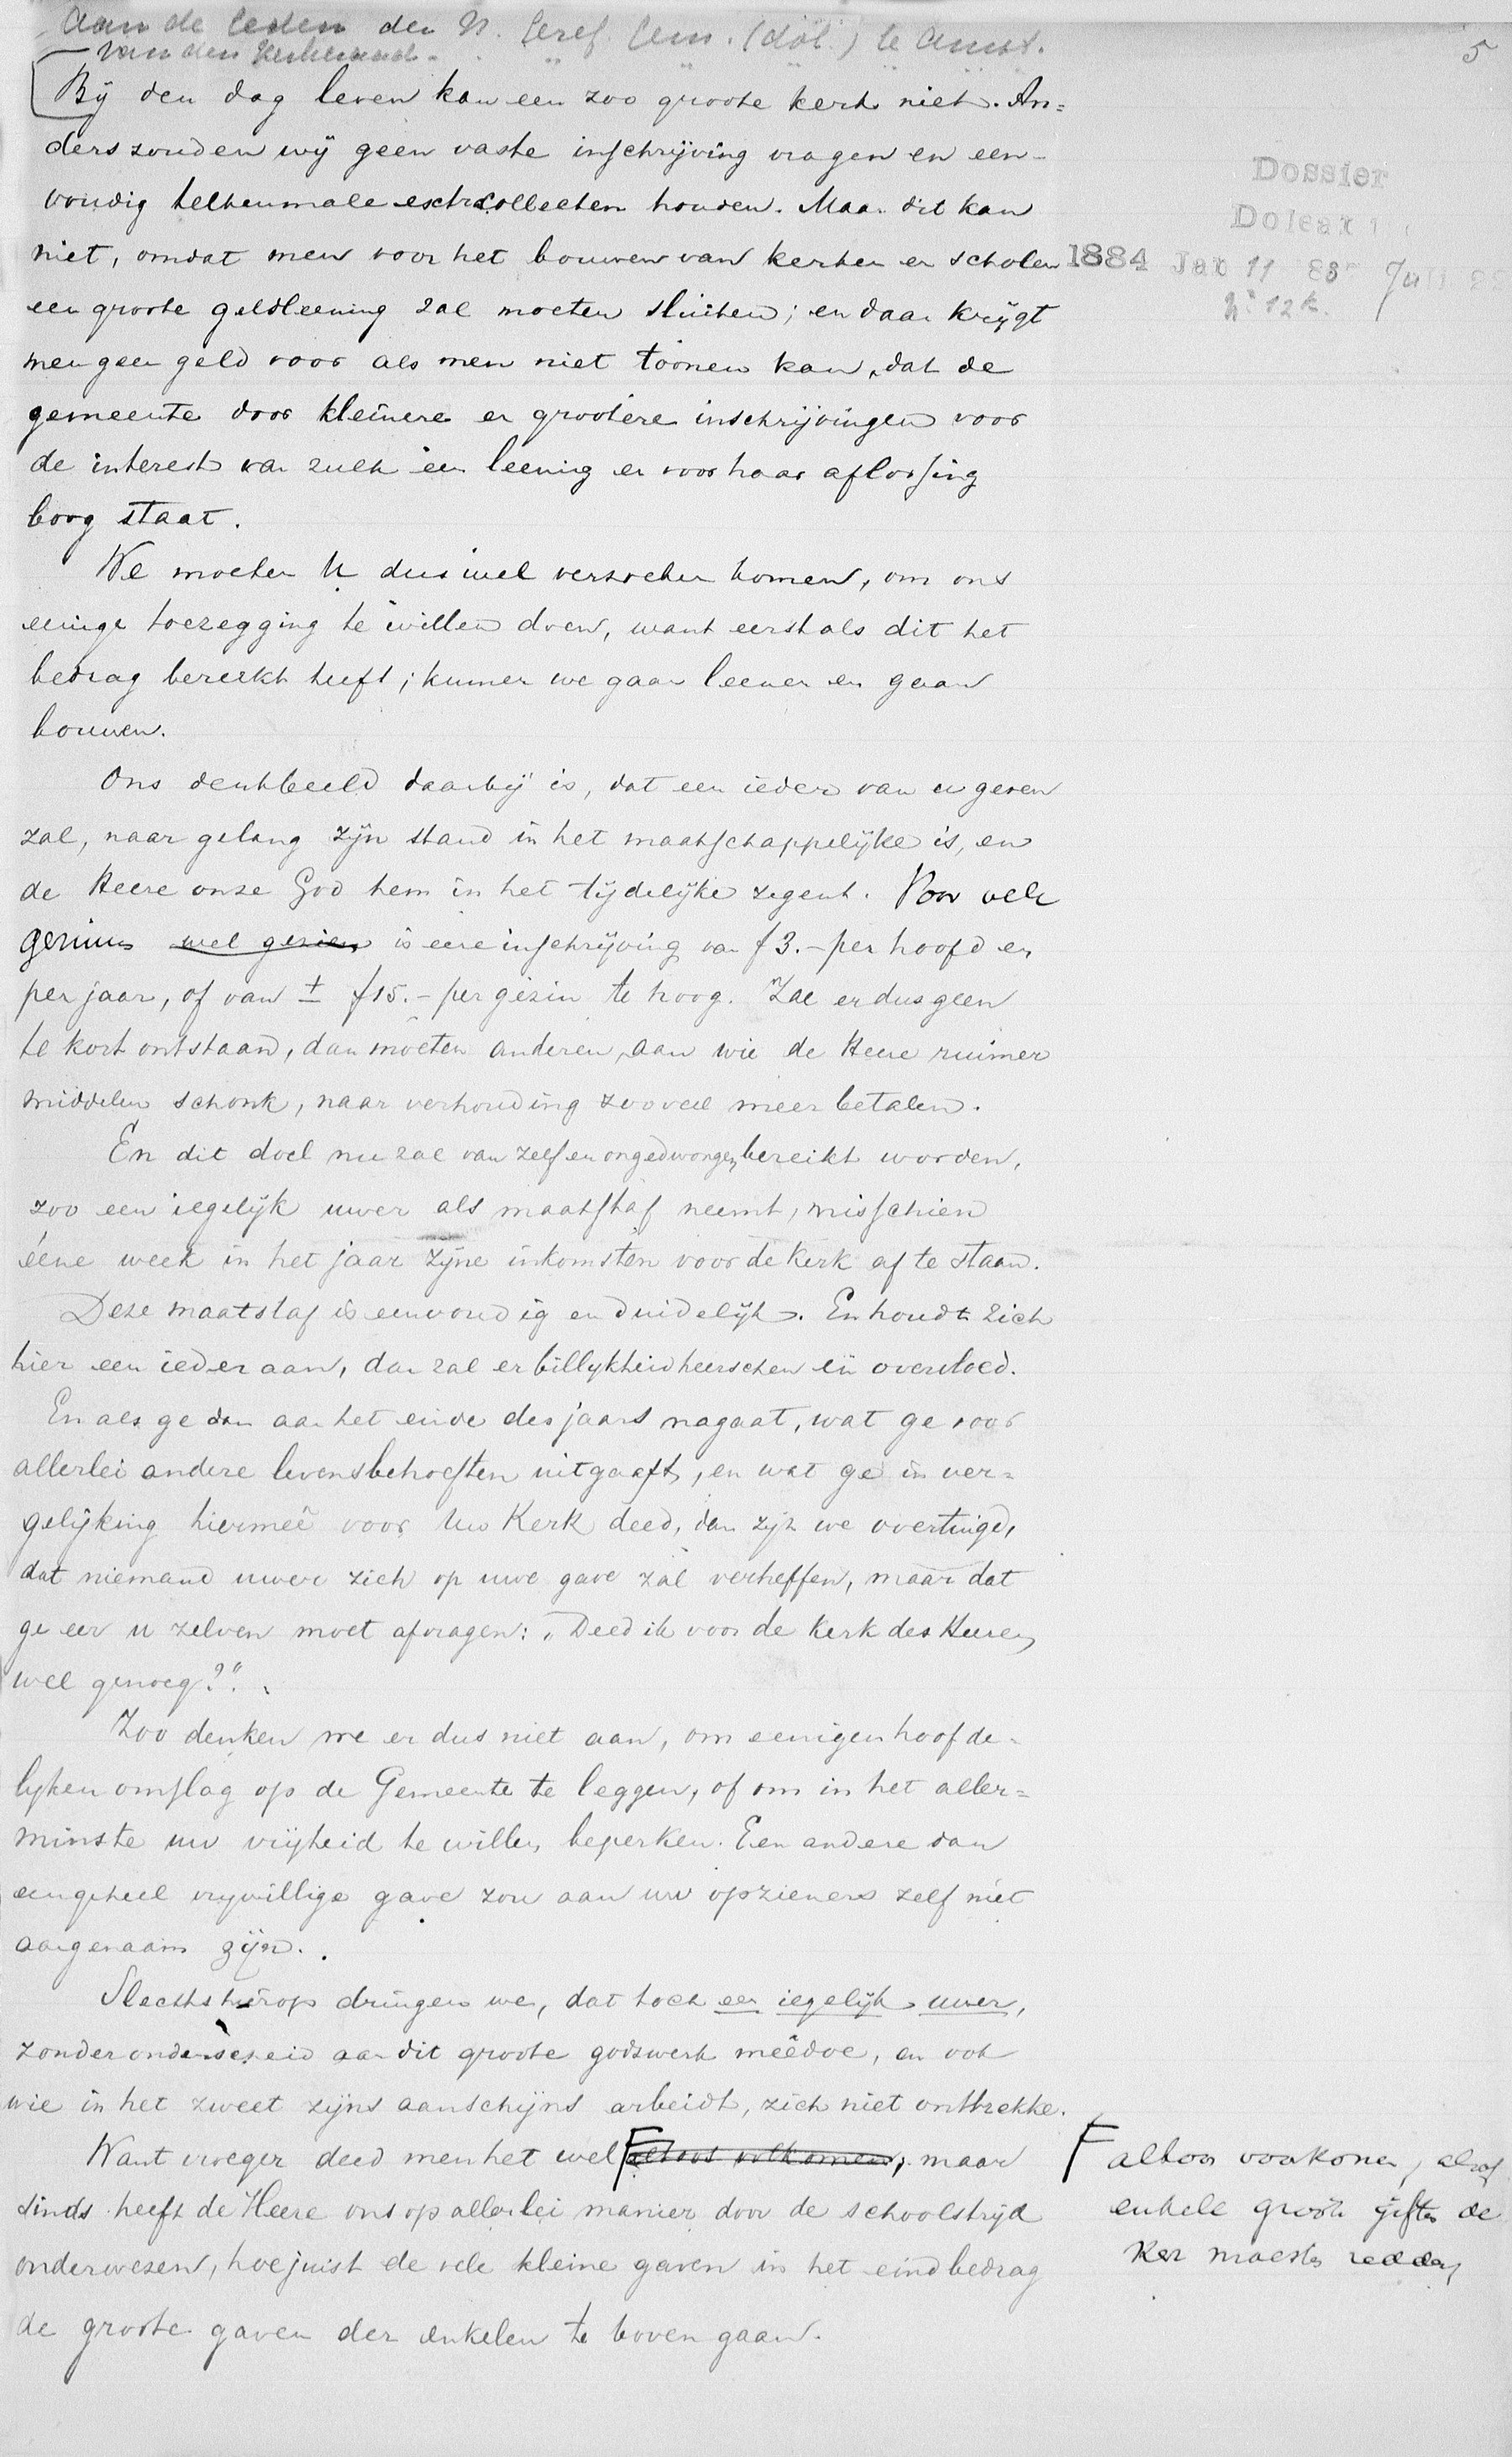 Aan de leden der N. Geref. Gem. (dol.) te Amst.
van den Kerkeraad.
5
Bij den dag leven kan een zoo groote kerk niet. An=
ders zouden wij geen vaste inschrijving vragen en een-
voudig telkenmale extracollecten houden. Maar dit kan
niet, omdat men voor het bouwen van kerken en scholen
een groote geldleening zal moeten sluiten; en daar krijgt
men geen geld voor als men niet toonen kan, dat de
gemeente door kleinere en grootere inschrijvingen voor
de interest van zulk een leening en voor haar aflossing
borg staat.
We moeten U dus wel verzoeken komen, om ons
eenige toezegging te willen doen, want eerst als dit het
bedrag bereikt heeft, kunnen we gaan leenen en gaan
bouwen.
Ons denkbeeld daarbij is, dat een ieder van u geven
zal, naar gelang zijn stand in het maatschappelijke is, en
de Heere onze God hem in het tijdelijke zegent. Voor vele
gezinnen wel gezien is eene inschrijving van f 3.- per hoofd en
per jaar, of van ± f 15.- per gezin te hoog. Zal er dus geen
te kort ontstaan, dan moeten anderen, aan wie de Heere ruimer
middelen schonk, naar verhouding zooveel meer betalen.
En dit doel nu zal van zelf en ongedwongen bereikt worden,
zoo een iegelijk uwer als maatstaf neemt, misschien
ééne week in het jaar zijne inkomsten voor de kerk af te staan.
Deze maatstaf is eenvoudig en duidelijk. En houdt zich
hier een ieder aan, dan zal er billijkheid heerschen en overvloed.
En als ge dan aan het einde des jaars nagaat, wat ge voor
allerlei andere levensbehoeften uitgaaft, en wat ge in ver=
gelijking hiermeê voor Uw Kerk deed, dan zijn we overtuigd,
dat niemand uwer zich op uwe gave zal verheffen, maar dat
ge eer u zelven moet afvragen: „Deed ik voor de Kerk des Heeren
wel genoeg?"
Zoo denken we er dus niet aan, om eenigen hoofde-
lijken omslag op de Gemeente te leggen, of om in het aller=
minste uw vrijheid te willen beperken. Een andere dan
een geheel vrijwillige gave zou aan uw opzieners zelf niet
aangenaam zijn.
Slechts hierop dringen we, dat toch een iegelijk uwer,
zonder onderscheid aan dit groote godswerk meêdoe, en ook
wie in het zweet zijns aanschijns arbeidt, zich niet onttrekke.
Want vroeger deed men het wel altoos volkomen, maar
sinds heeft de Heere ons op allerlei manier door de schoolstrijd
onderwezen, hoe juist de vele kleine gaven in het eindbedrag
de groote gaven der enkelen te boven gaan.
Dossier
1884 Jan 11 83 Juli
N° 12k.
altoos voorkomen, alsof
enkele groote giften de
Ker moesten redden,